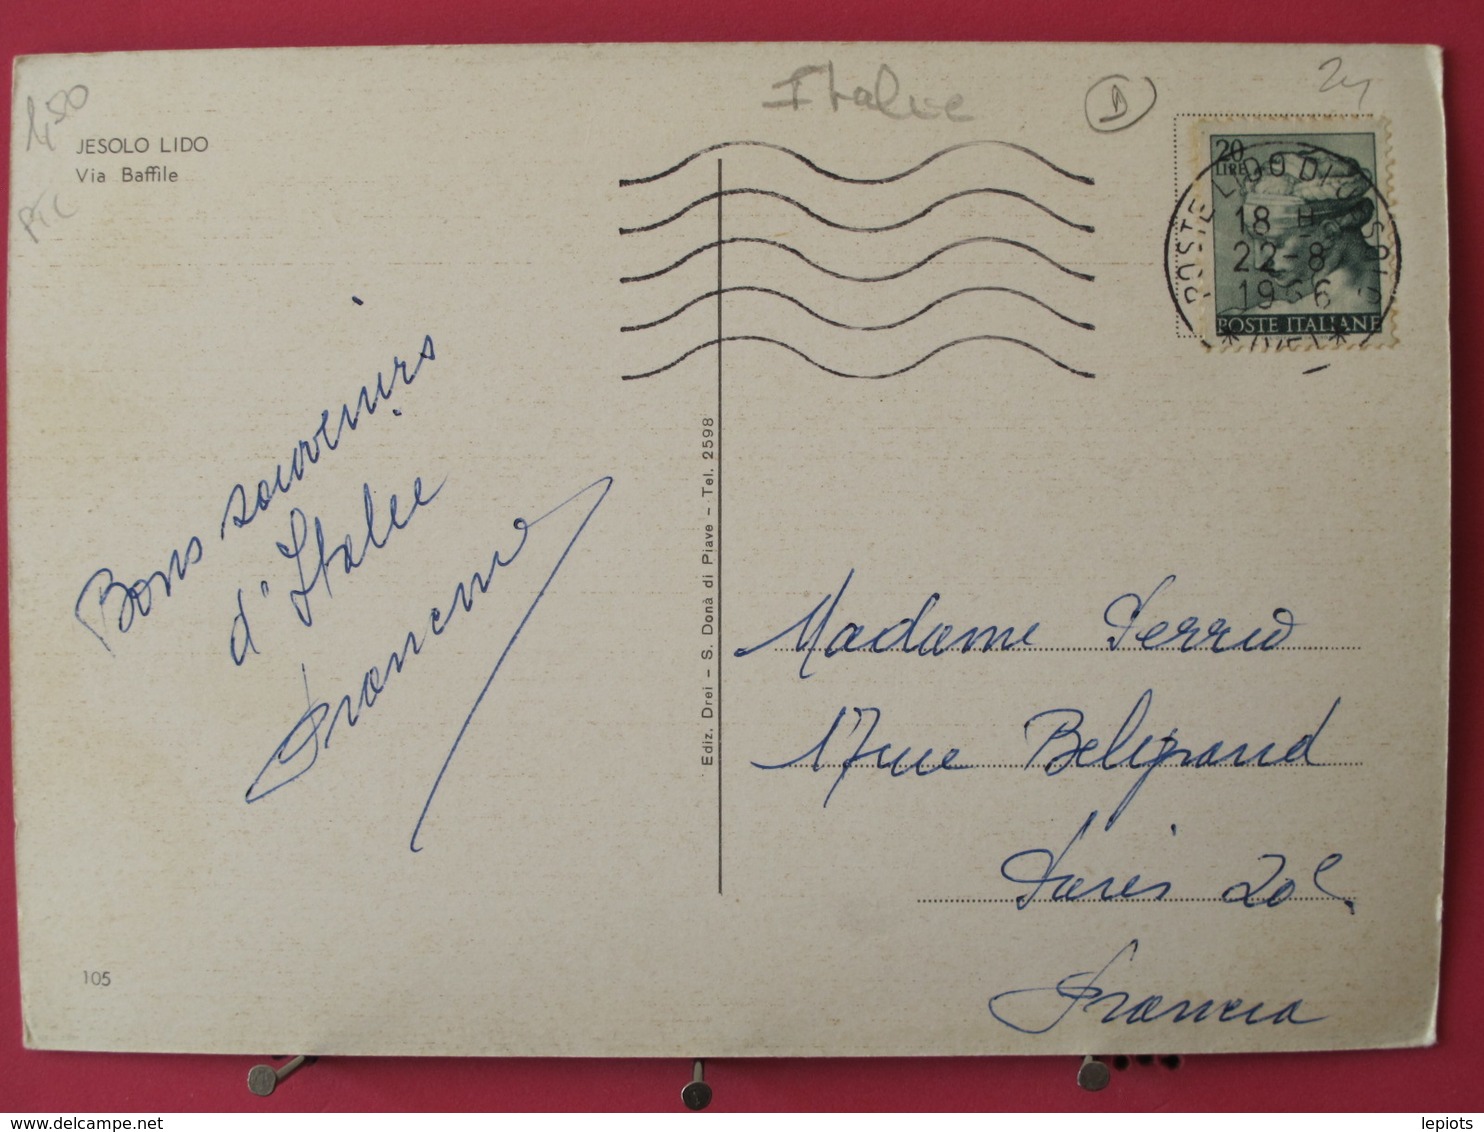 1,50
JESOLO LIDO
Via Baffile
Italie
D
24
20
LIRE
POSTE LIDO DI JESOLO
18 H
22-8
1966
* (VE) *
POSTE ITALIANE
Bons souvenirs
d'Italie
Ediz. Drei – S. Donà di Piave – Tel. 2598
Madame
17 rue Belgrand
Paris 20e
Francia
105
delcampe.net
lepiots